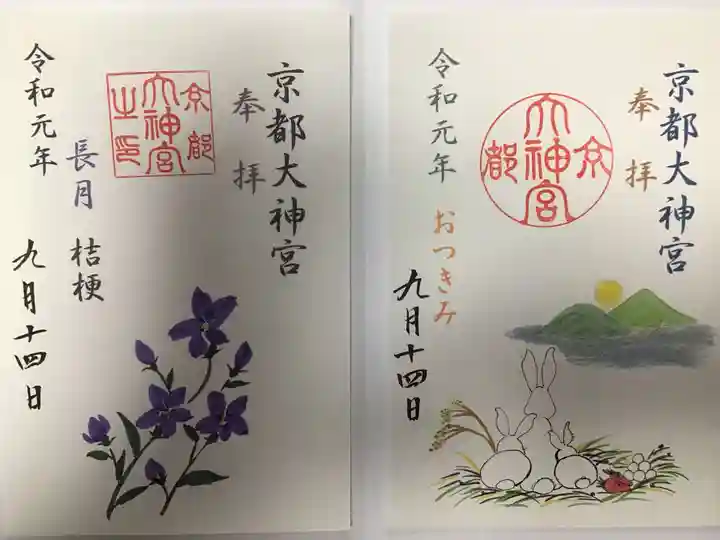 京都大神宮
奉拝
京都
大神宮
之印
長月 桔梗
令和元年
九月十四日
京都大神宮
奉拝
京
大神宮
都
おつきみ
令和元年
九月十四日